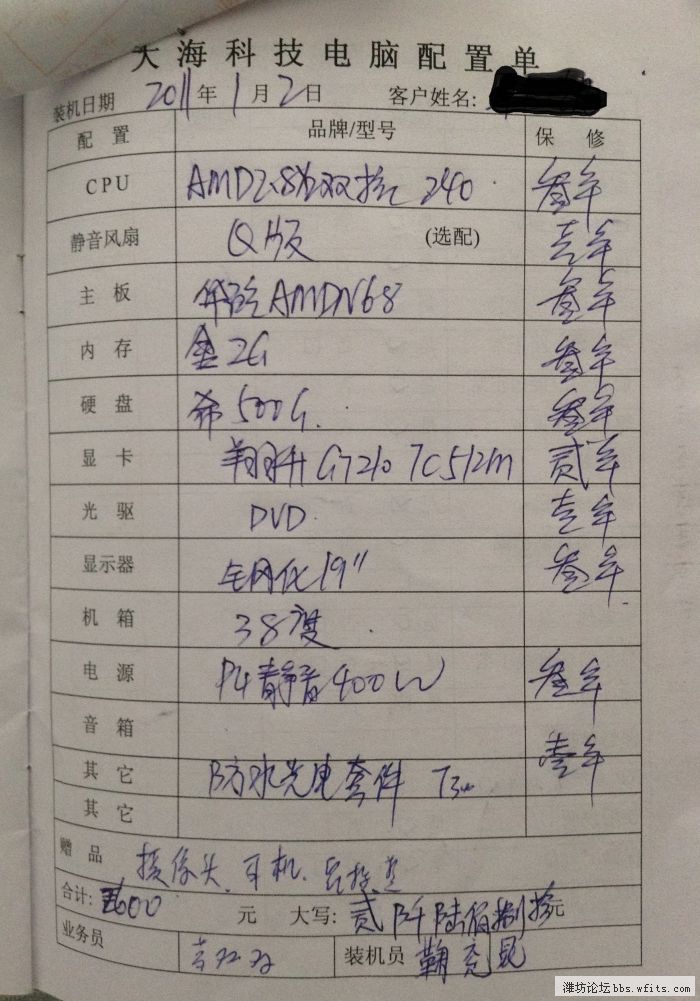 大海科技电脑配置单
装机日期 2011年1月2日 客户姓名:
配置 品牌/型号 保修
CPU AMD2.8 双核 240 叁年
静音风扇 Q版 (选配) 壱年
主板 华硕AMDN68 叁年
内存 金2G 叁年
硬盘 希500G. 叁年
显卡 翔升G7210 TC512m 贰年
光驱 DVD 壱年
显示器 全钢化19" 叁年
机箱 38度
电源 P4静音400W 叁年
音箱
其它 防水光电套件 壹年
其它
赠品 摄像头、耳机、
合计: 600 元 大写: 贰仟陆佰捌拾元
业务员 装机员
潍坊论坛bbs.wfits.com